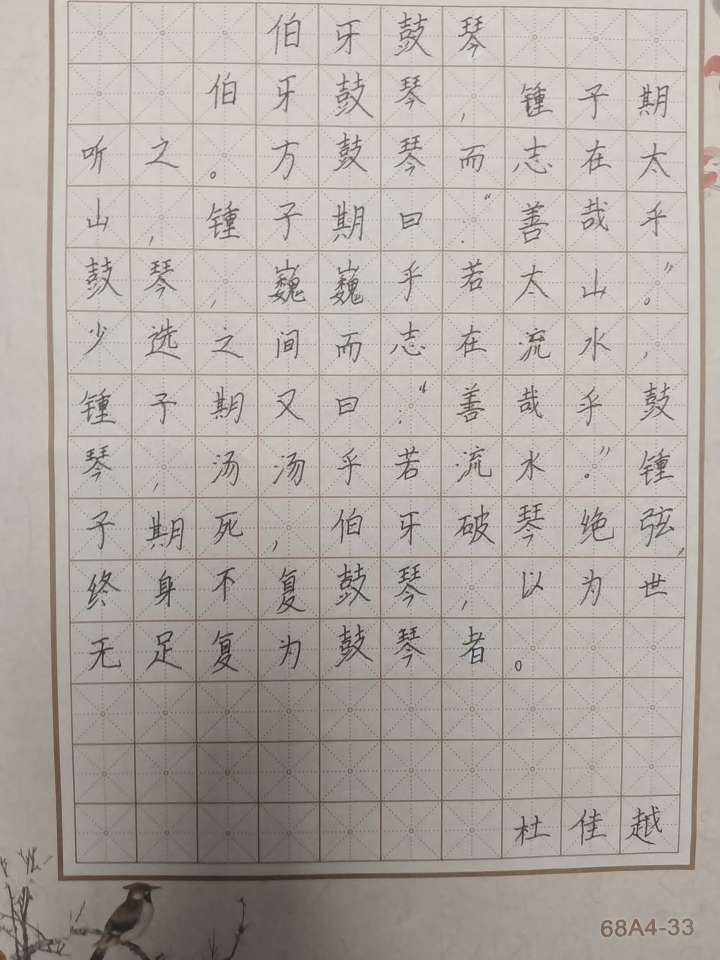 伯牙鼓琴
伯牙鼓琴，锺子期
听之。方鼓琴而志在太
山，锺子期曰：“善哉乎
鼓琴，巍巍乎若太山。”
少选之间而志在流水，
锺子期又曰：“善哉乎鼓
琴，汤汤乎若流水。”锺
子期死，伯牙破琴绝弦，
终身不复鼓琴，以为世
无足复为鼓琴者。
杜佳越
68A4-33